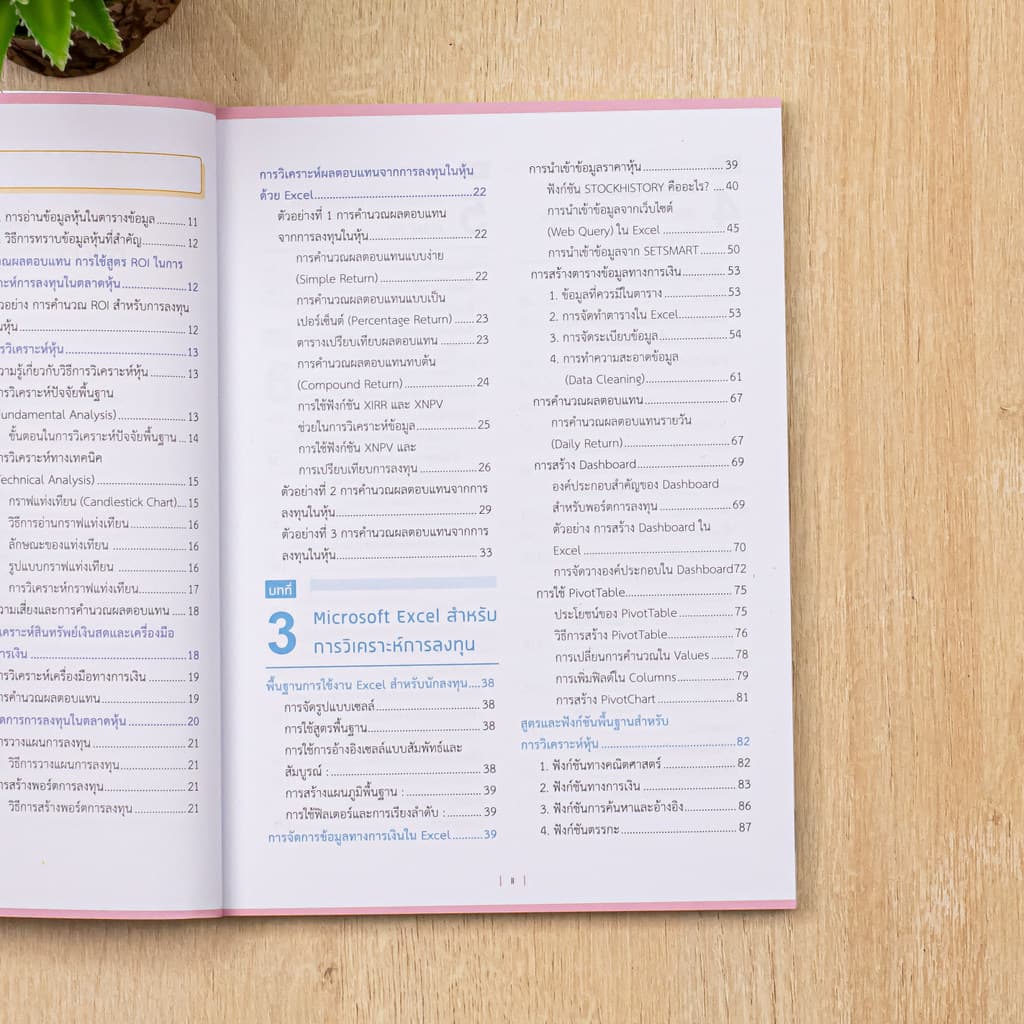 . การอ่านข้อมูลหุ้นในตารางข้อมูล.......... 11
. วิธีการทราบข้อมูลหุ้นที่สำคัญ.............. 12
ณผลตอบแทน การใช้สูตร ROI ในการ
ะห์การลงทุนในตลาดหุ้น..................... 12
วอย่าง การคำนวณ ROI สำหรับการลงทุน
หุ้น.................................................. 12
รวิเคราะห์หุ้น..................................... 13
วามรู้เกี่ยวกับวิธีการวิเคราะห์หุ้น............ 13
ารวิเคราะห์ปัจจัยพื้นฐาน
undamental Analysis)..................... 13
ขั้นตอนในการวิเคราะห์ปัจจัยพื้นฐาน... 14
ารวิเคราะห์ทางเทคนิค
echnical Analysis)........................... 15
กราฟแท่งเทียน (Candlestick Chart).... 15
วิธีการอ่านกราฟแท่งเทียน................. 16
ลักษณะของแท่งเทียน ...................... 16
รูปแบบกราฟแท่งเทียน ..................... 16
การวิเคราะห์กราฟแท่งเทียน............... 17
วามเสี่ยงและการคำนวณผลตอบแทน ..... 18
เคราะห์สินทรัพย์เงินสดและเครื่องมือ
ารเงิน ............................................... 18
ารวิเคราะห์เครื่องมือทางการเงิน ........... 19
ารคำนวณผลตอบแทน........................ 19
ัดการการลงทุนในตลาดหุ้น .................. 20
ารวางแผนการลงทุน........................... 21
วิธีการวางแผนการลงทุน................... 21
ารสร้างพอร์ตการลงทุน....................... 21
วิธีการสร้างพอร์ตการลงทุน............... 21
การวิเคราะห์ผลตอบแทนจากการลงทุนในหุ้น
ด้วย Excel.......................................... 22
ตัวอย่างที่ 1 การคำนวณผลตอบแทน
จากการลงทุนในหุ้น............................. 22
การคำนวณผลตอบแทนแบบง่าย
(Simple Return) ............................ 22
การคำนวณผลตอบแทนแบบเป็น
เปอร์เซ็นต์ (Percentage Return) ...... 23
ตารางเปรียบเทียบผลตอบแทน .......... 23
การคำนวณผลตอบแทนทบต้น
(Compound Return)..................... 24
การใช้ฟังก์ชัน XIRR และ XNPV
ช่วยในการวิเคราะห์ข้อมูล.................. 25
การใช้ฟังก์ชัน XNPV และ
การเปรียบเทียบการลงทุน ................. 26
ตัวอย่างที่ 2 การคำนวณผลตอบแทนจากการ
ลงทุนในหุ้น........................................ 29
ตัวอย่างที่ 3 การคำนวณผลตอบแทนจากการ
ลงทุนในหุ้น........................................ 33
บทที่
3 Microsoft Excel สำหรับ
การวิเคราะห์การลงทุน
พื้นฐานการใช้งาน Excel สำหรับนักลงทุน.... 38
การจัดรูปแบบเซลล์.............................. 38
การใช้สูตรพื้นฐาน................................ 38
การใช้การอ้างอิงเซลล์แบบสัมพัทธ์และ
สัมบูรณ์ : ........................................... 38
การสร้างแผนภูมิพื้นฐาน : ..................... 39
การใช้ฟิลเตอร์และการเรียงลำดับ : .......... 39
การจัดการข้อมูลทางการเงินใน Excel......... 39
การนำเข้าข้อมูลราคาหุ้น ....................... 39
ฟังก์ชัน STOCKHISTORY คืออะไร? .... 40
การนำเข้าข้อมูลจากเว็บไซต์
(Web Query) ใน Excel ................... 45
การนำเข้าข้อมูลจาก SETSMART........ 50
การสร้างตารางข้อมูลทางการเงิน ............ 53
1. ข้อมูลที่ควรมีในตาราง .................... 53
2. การจัดทำตารางใน Excel............... 53
3. การจัดระเบียบข้อมูล...................... 54
4. การทำความสะอาดข้อมูล
(Data Cleaning)......................... 61
การคำนวณผลตอบแทน......................... 67
การคำนวณผลตอบแทนรายวัน
(Daily Return)................................ 67
การสร้าง Dashboard........................... 69
องค์ประกอบสำคัญของ Dashboard
สำหรับพอร์ตการลงทุน....................... 69
ตัวอย่าง การสร้าง Dashboard ใน
Excel ............................................ 70
การจัดวางองค์ประกอบใน Dashboard72
การใช้ PivotTable................................ 75
ประโยชน์ของ PivotTable ................. 75
วิธีการสร้าง PivotTable.................... 76
การเปลี่ยนการคำนวณใน Values ....... 78
การเพิ่มฟิลด์ใน Columns................. 79
การสร้าง PivotChart ....................... 81
สูตรและฟังก์ชันพื้นฐานสำหรับ
การวิเคราะห์หุ้น .................................... 82
1. ฟังก์ชันทางคณิตศาสตร์ ..................... 82
2. ฟังก์ชันทางการเงิน ........................... 83
3. ฟังก์ชันการค้นหาและอ้างอิง................ 86
4. ฟังก์ชันตรรกะ.................................. 87
| II |